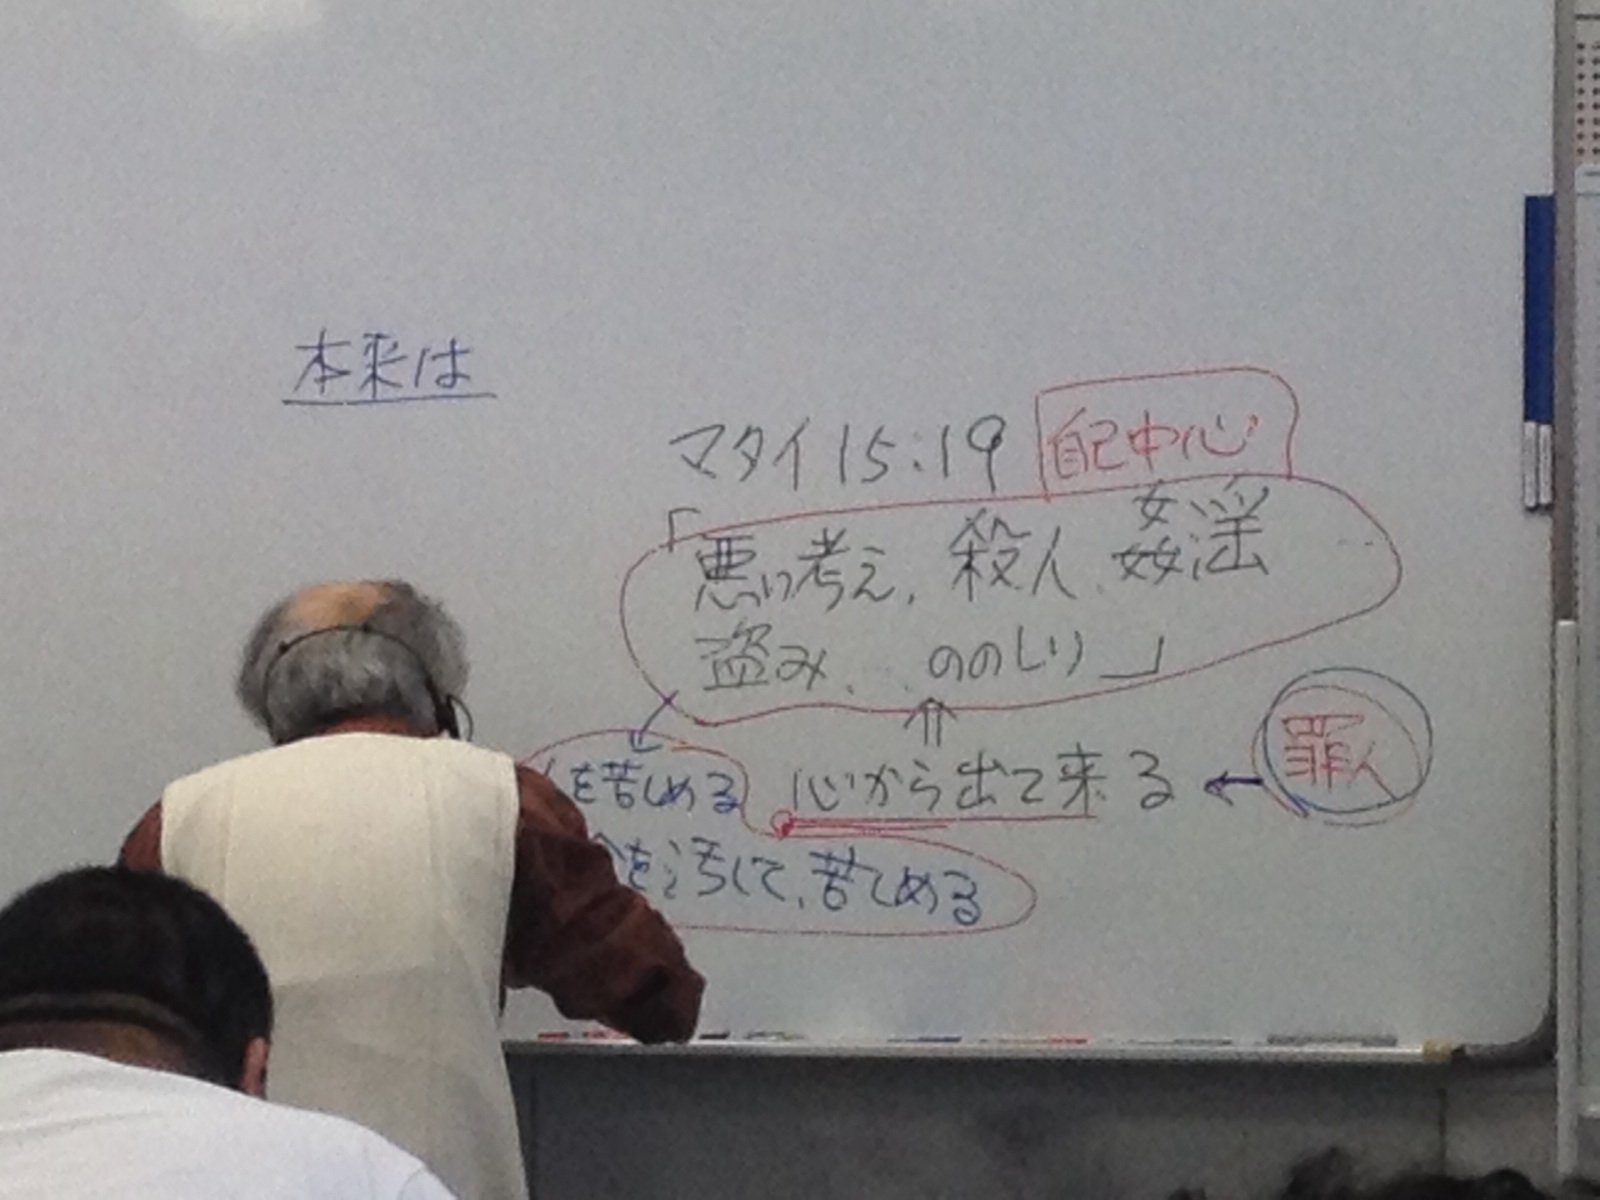 本来は
マタイ 15:19 自己中心
「悪い考え、殺人、姦淫
盗み、..ののしり」
を苦しめる 心から出て来る ← 罪人
を汚して、苦しめる